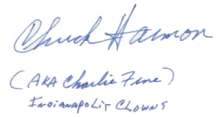 Chuck Harmon
(AKA Charlie Fine)
Indianapolis Clowns